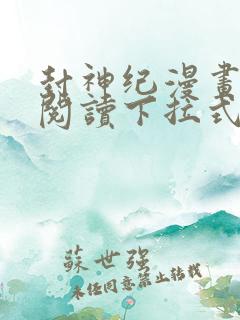 封神纪漫畫
閱讀下拉式
蘇世強
未經同意禁止轉載